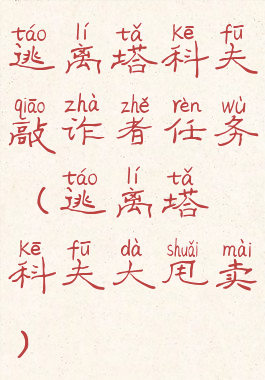 táo lí tǎ kē fū
逃离塔科夫
qiāo zhà zhě rèn wù
敲诈者任务
táo lí tǎ
(逃离塔
kē fū dà shuǎi mài
科夫大甩卖
)